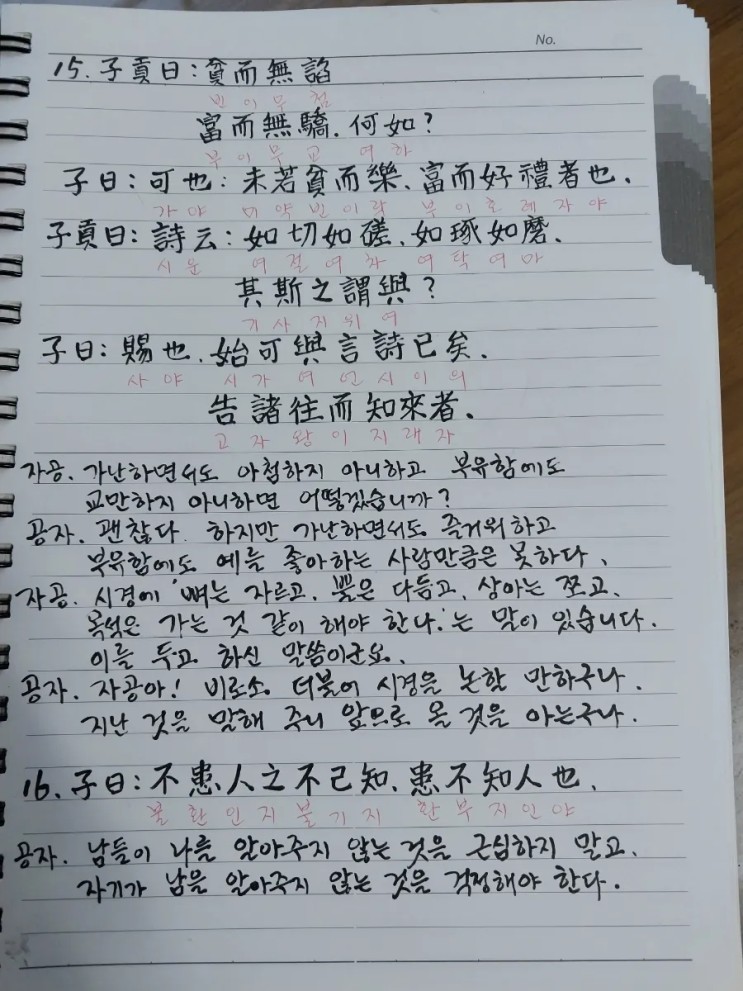 No.
15. 子貢曰: 貧而無諂
빈 이 무 첨
富而無驕. 何如?
부 이 무 교 여 하
子曰: 可也: 未若貧而樂. 富而好禮者也.
가 야 미 약 빈 이 락 부 이 호 례 자 야
子貢曰: 詩云: 如切如磋. 如琢如磨.
시 운 여 절 여 차 여 탁 여 마
其斯之謂與?
기 사 지 위 여
子曰: 賜也. 始可與言詩已矣.
사 야 시 가 여 언 시 이 의
告諸往而知來者.
고 자 왕 이 지 래 자
자공. 가난하면서도 아첨하지 아니하고 부유함에도
교만하지 아니하면 어떻겠습니까?
공자. 괜찮다. 하지만 가난하면서도 즐거워하고
부유함에도 예를 좋아하는 사람만큼은 못하다.
자공. 시경에 '뼈는 자르고. 뿔은 다듬고. 상아는 쪼고.
옥석은 가는 것 같이 해야 한다.'는 말이 있습니다.
이를 두고 하신 말씀이군요.
공자. 자공아! 비로소 더불어 시경을 논할 만하구나.
지난 것을 말해 주니 앞으로 올 것을 아는구나.
16. 子曰: 不患人之不己知. 患不知人也.
불 환 인 지 불 기 지 환 부 지 인 야
공자. 남들이 나를 알아주지 않는 것을 근심하지 말고.
자기가 남을 알아주지 않는 것을 걱정해야 한다.